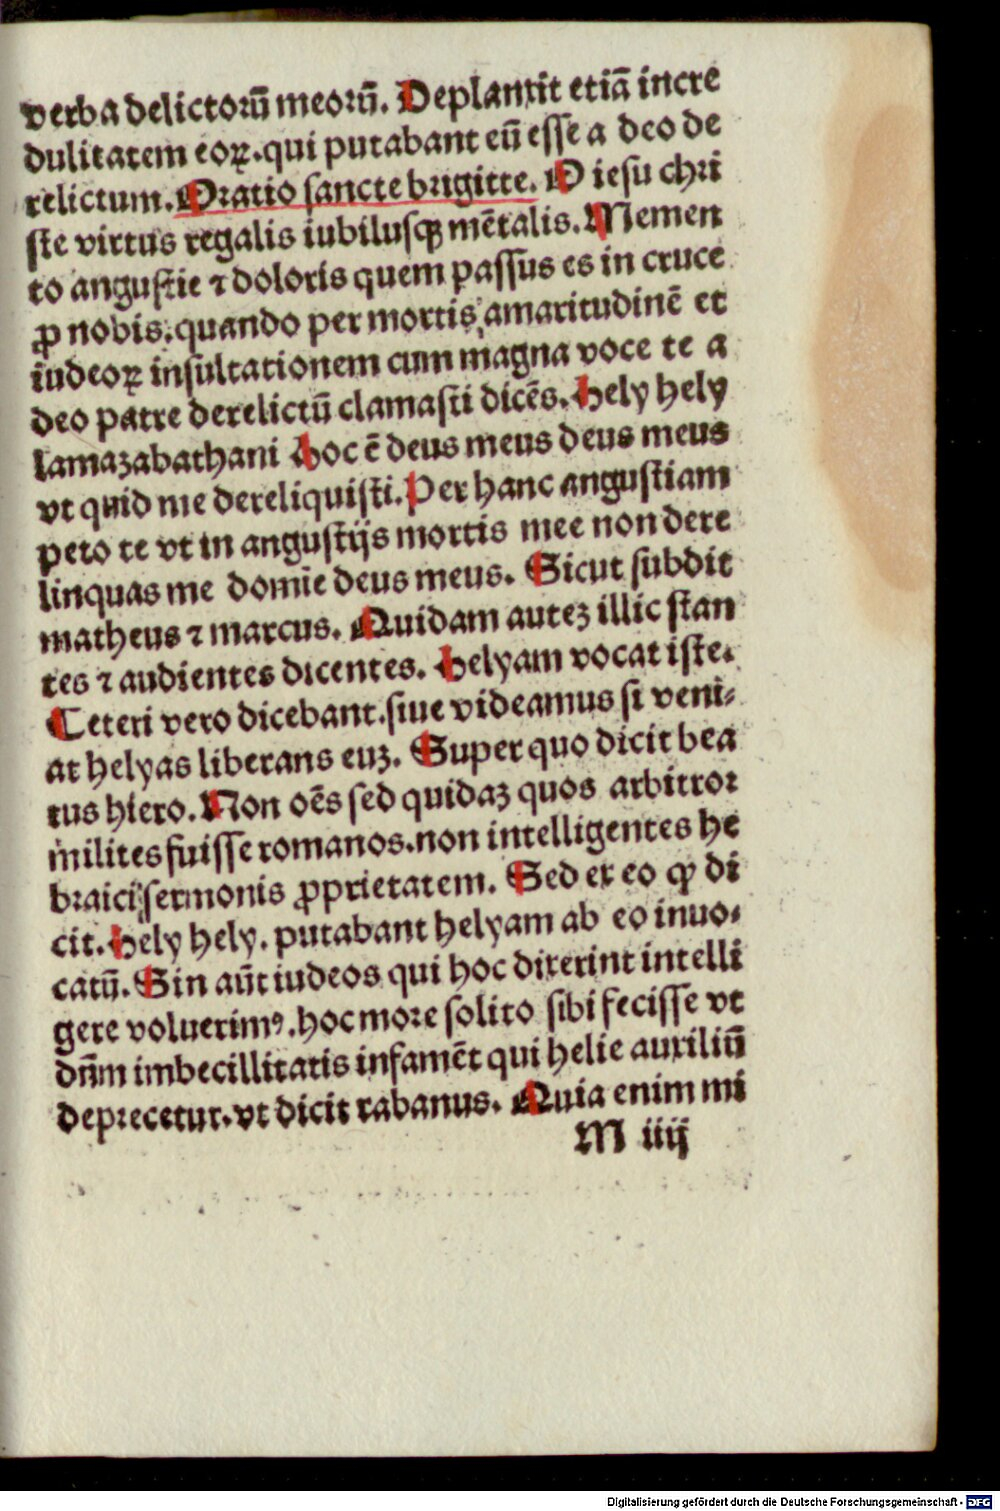 verba delictorū meorū. Deplanxit etiā incre
dulitatem eoꝝ. qui putabant eū esse a deo de
relictum. Oratio sancte brigitte. O iesu chri
ste virtus regalis iubilusqꝫ mētalis. Memen
to angustie ⁊ doloris quem passus es in cruce
ꝓ nobis. quando per mortis amaritudinē et
iudeoꝝ insultationem cum magna voce te a
deo patre derelictū clamasti dicēs. Hely hely
lamazabathani Hoc ē deus meus deus meus
vt quid me dereliquisti. Per hanc angustiam
peto te vt in angustijs mortis mee non dere
linquas me domīe deus meus. Sicut subdit
matheus ⁊ marcus. Quidam auteꝫ illic stan
tes ⁊ audientes dicentes. Helyam vocat iste.
Ceteri vero dicebant. siue videamus si veni-
at helyas liberans euꝫ. Super quo dicit bea
tus hiero. Non oēs sed quidaꝫ quos arbitror
milites fuisse romanos. non intelligentes he
braici sermonis ꝓprietatem. Sed ex eo ꝙ di
cit. Hely hely. putabant helyam ab eo inuo-
catū. Sin aūt iudeos qui hoc dixerint intelli
gere voluerimꝰ. hoc more solito sibi fecisse vt
dn̄m imbecillitatis infamēt qui helie auxiliū
deprecetur. vt dicit rabanus. Quia enim mi
M iiij
Digitalisierung gefördert durch die Deutsche Forschungsgemeinschaft - DFG